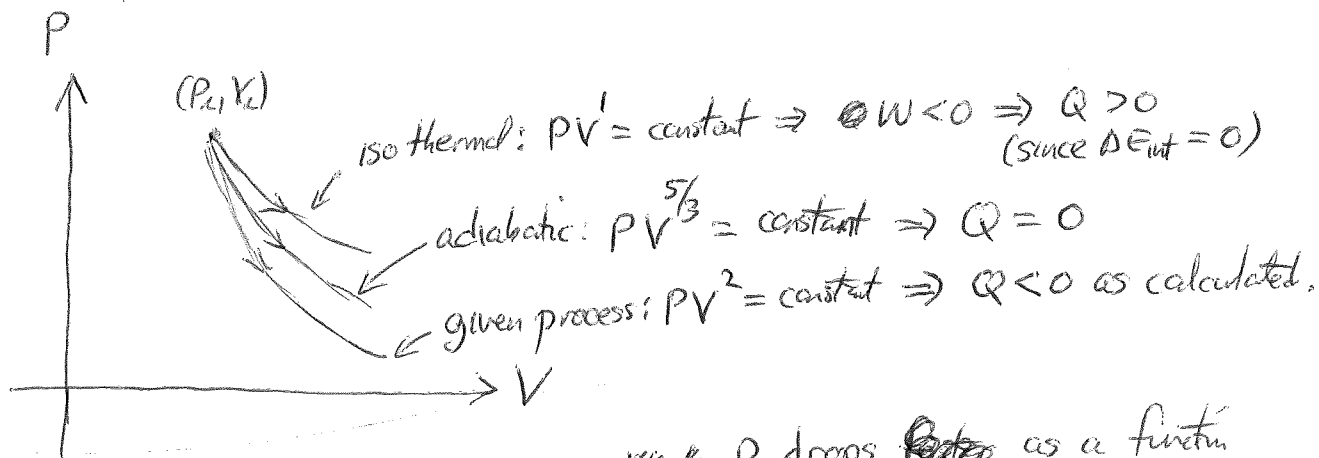 P
(Pᵢ, Vᵢ)
isothermal: PV¹ = constant ⇒ W<0 ⇒ Q>0
(since ΔE_int = 0)
adiabatic: PV^5/3 = constant ⇒ Q = 0
given process: PV² = constant ⇒ Q<0 as calculated.
V
P drops as a function